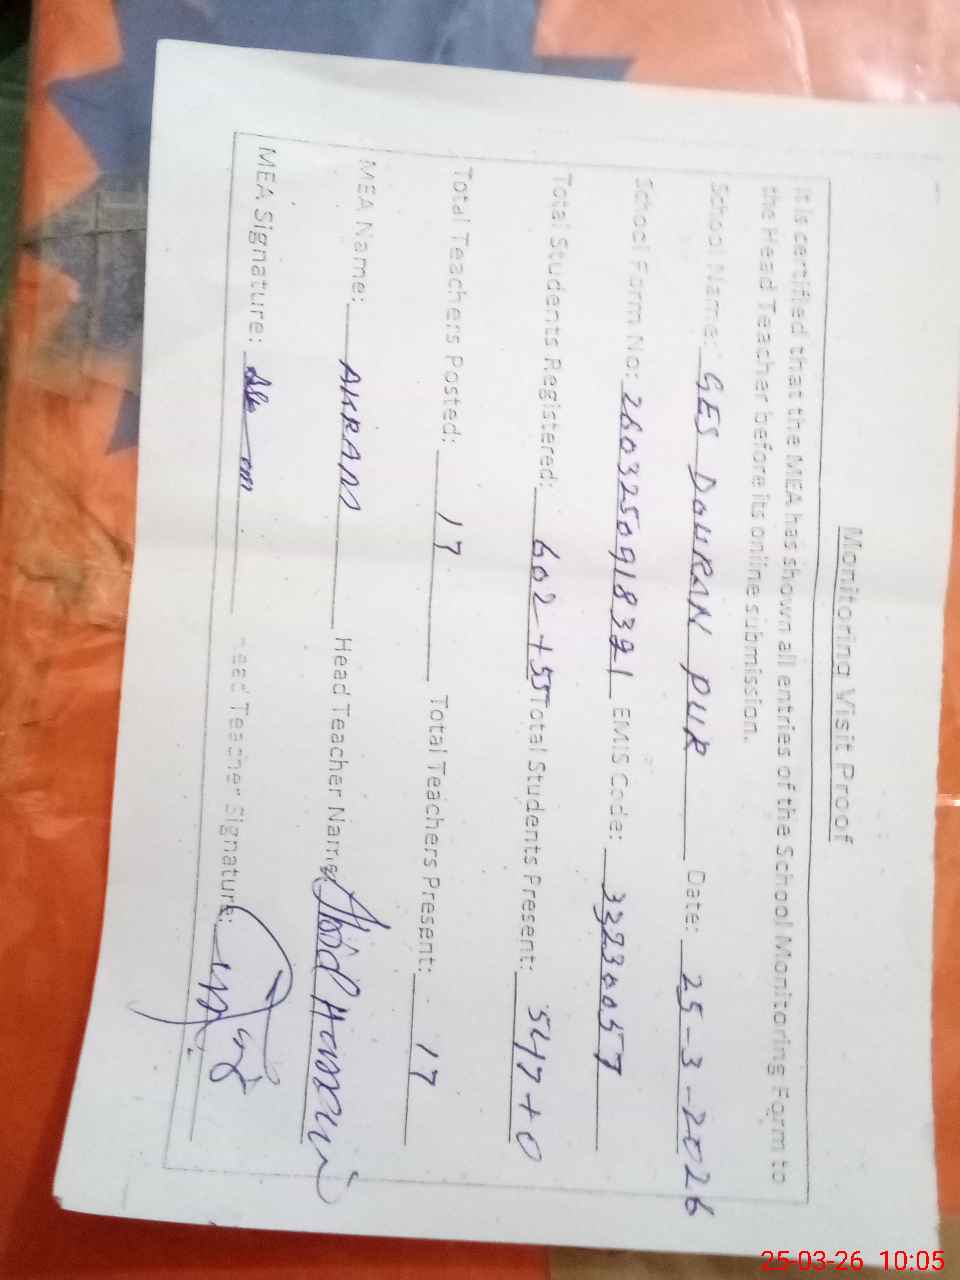 Monitoring Visit Proof
It is certified that the MEA has shown all entries of the School Monitoring Form to
the Head Teacher before its online submission.
School Name: GES DOHRAN PUR Date: 25-3-2026
School Form No: 2603250918391 EMIS Code: 33230057
Total Students Registered: 602+55 Total Students Present: 547+0
Total Teachers Posted: 17 Total Teachers Present: 17
MEA Name: AKRAM Head Teacher Name: Abid Hussain
MEA Signature: Head Teacher Signature:
25-03-26 10:05